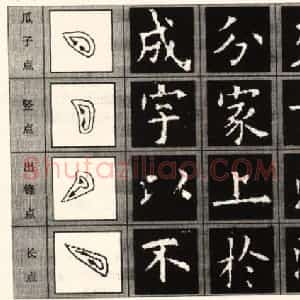 瓜子点 成 分
竖点 字 家
出锋点 以 上
长点 不 於
Shufaziliao.com